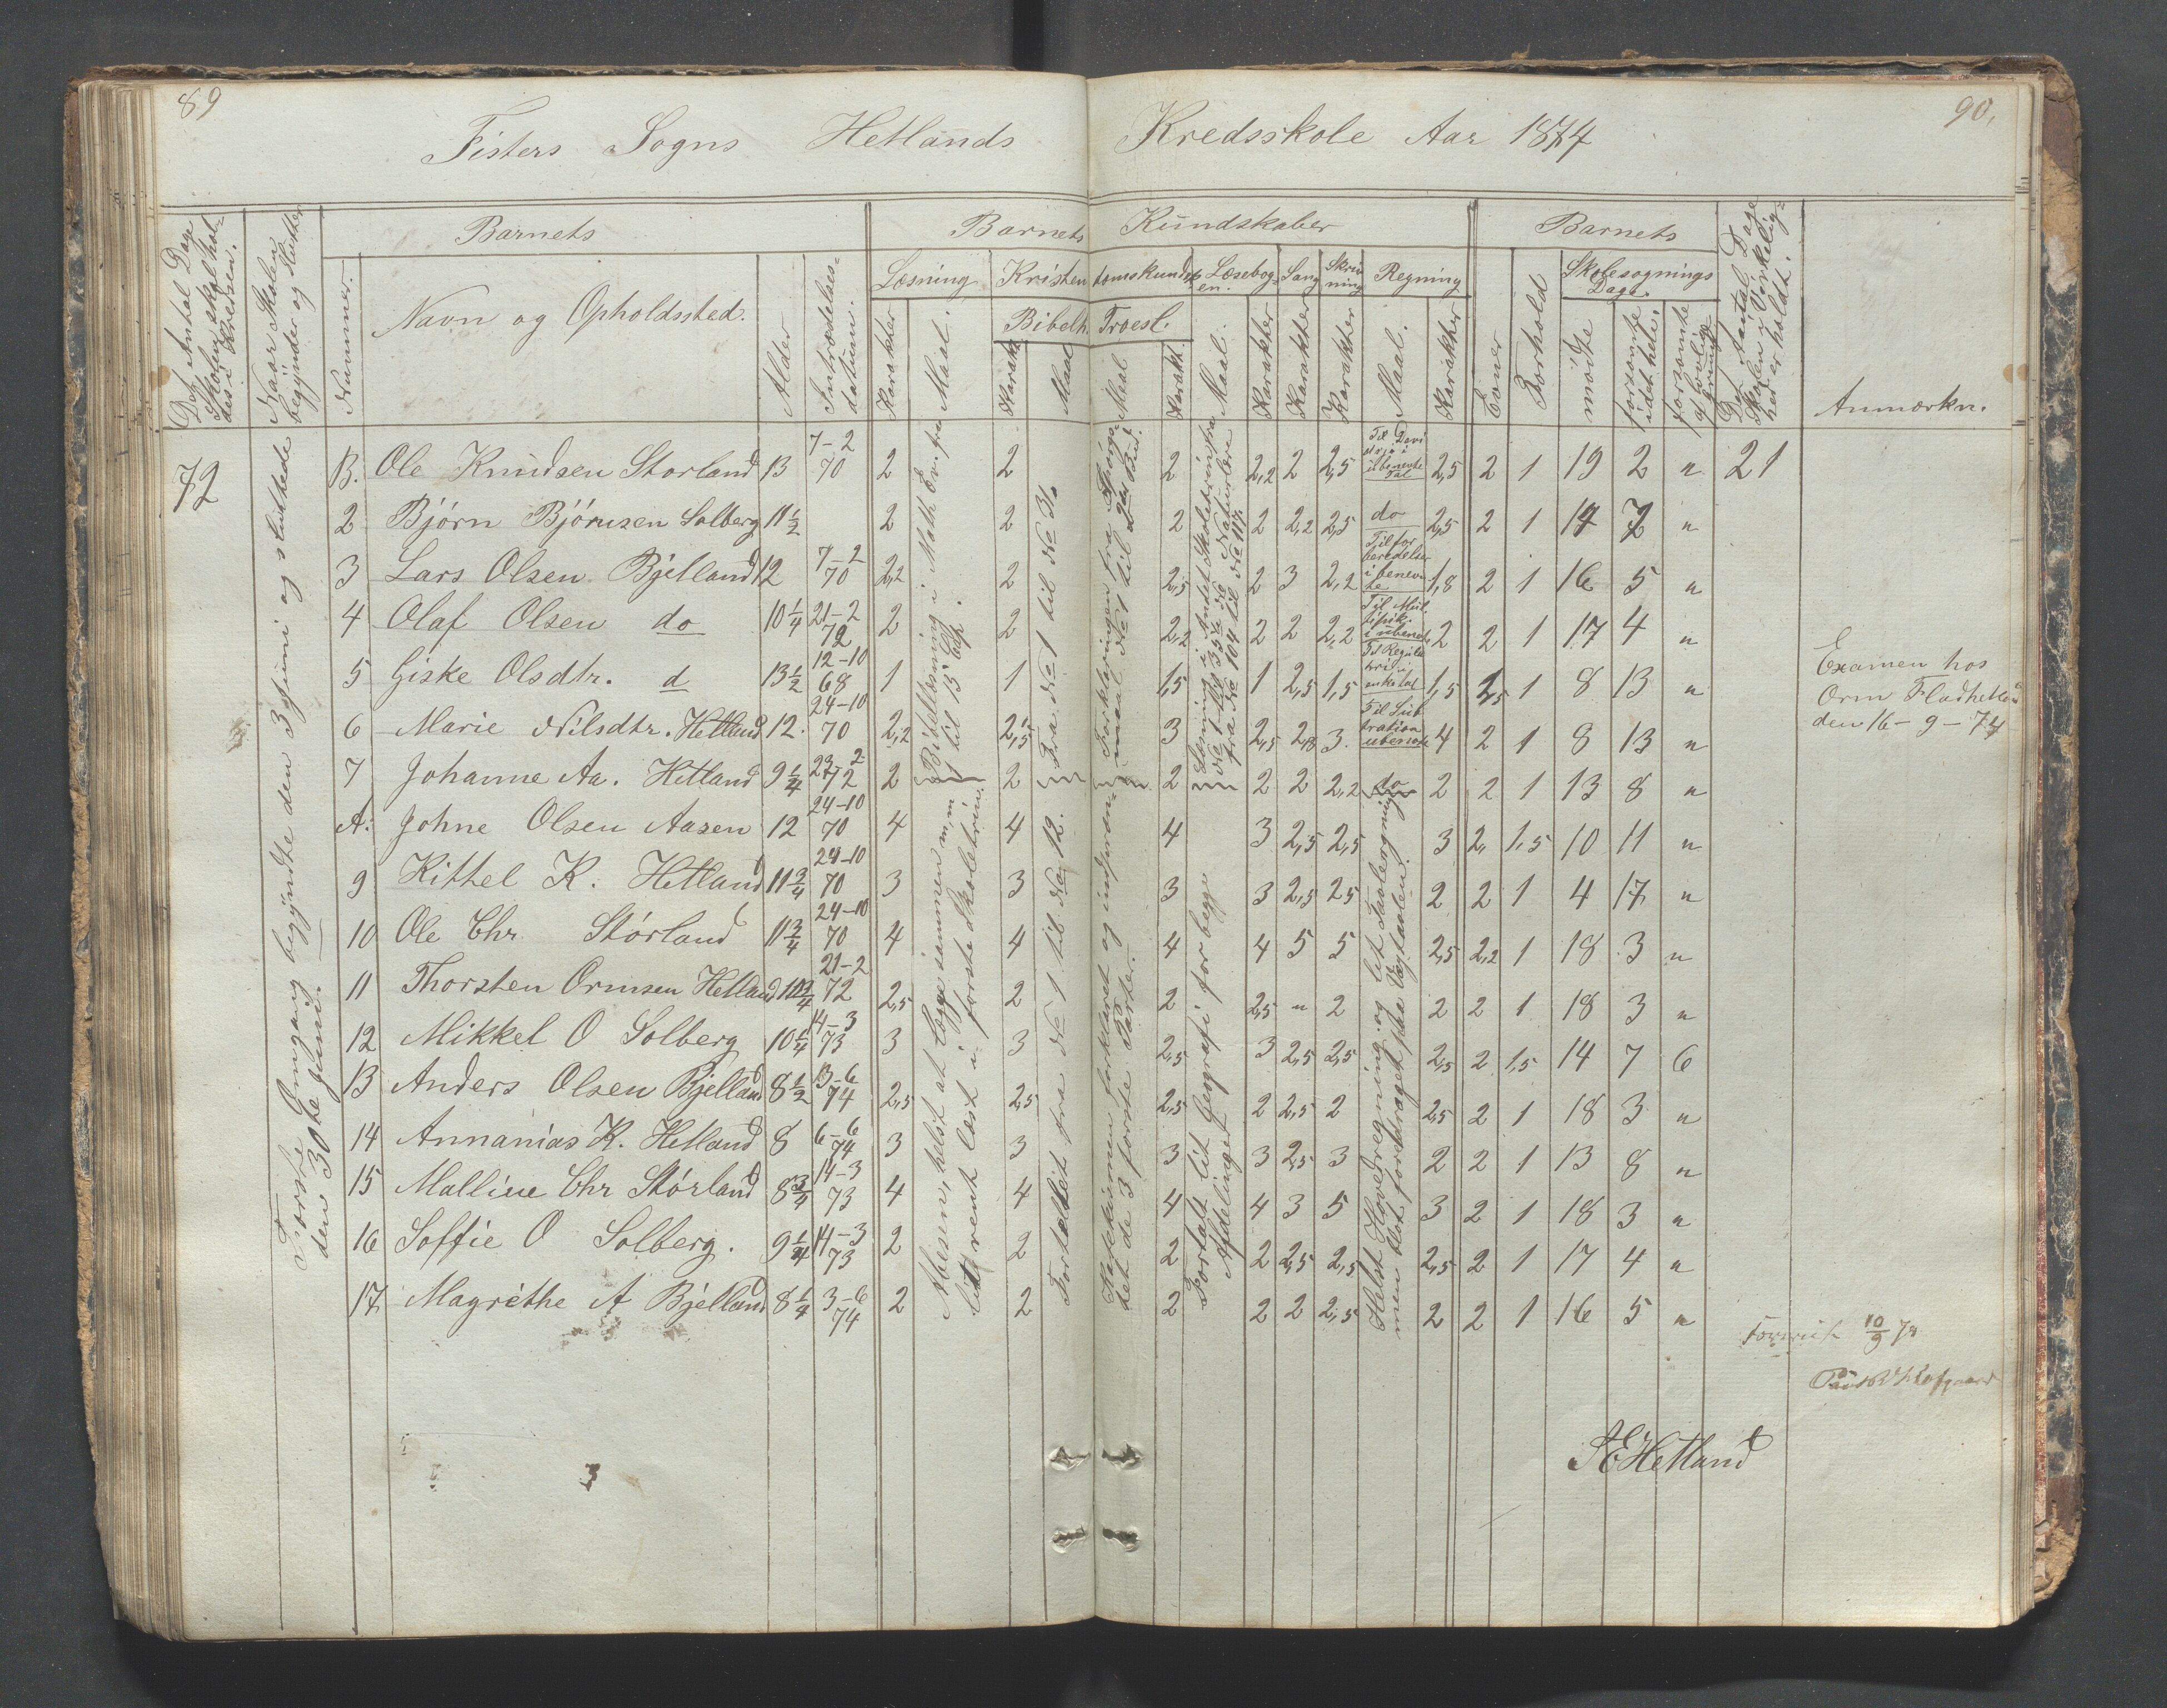 89
90,
Fisters Sogns Hetlands Kredsskole Aar 1874
Det Antal Dage Skolen skal holdes i Kredsen.
Naar Skolen begynder og slutter
Barnets
Nummer.
Navn og Opholdssted.
Alder
Introdelses-datum.
Barnets Kundskaber
Læsning
Karakter
Maal.
Kristendomskundsk.
Bibelh.
Karakt.
Maal
Troesl.
Maal
Karakt.
Læsebogen.
Maal.
Karakter
Sang
Karakter
Skrivning
Karakter
Regning
Maal.
Karakter
Barnets
Evner
Forhold
Skolesøgnings Dage.
mødte
forsømte i det hele.
forsømte af lovlig Grund
Det Antal Dage Skolen i Virkelighed er holdt.
Anmærkn.
72
Første Omgang begyndte den 3 Juni og sluttede den 30te Juni.
B. Ole Knudsen Storland 13 7-2 70 2 2 2 2,2 2 2,5 2,5 2 1 19 2 " 21
2 Bjørn Bjørnsen Solberg 11 1/2 2 2 2 2 2,2 2,5 do 2,5 2 1 14 7 "
3 Lars Olsen Bjelland 12 7-2 70 2,2 2 2,5 2 3 2,2 1,8 2 1 16 5 "
4 Olaf Olsen do 10 1/4 21-2 72 2 2 2,2 2 2 2,2 2 2 1 17 4 "
5 Giske Olsdtr. d 13 1/2 12-10 68 1 1 1,5 1 2,5 1,5 1,5 1,5 1 8 13 "
6 Marie Nilsdtr. Hetland 12. 24-10 70 2,2 2,5 3 2,5 2,8 3. 4 2 1 8 13 "
7 Johanne Aa. Hetland 9 1/4 23-2 72 2 2 2 2 2 2,2 do 2 2 1 13 8 "
A. Johne Olsen Aasen 12 24-10 70 4 4 4 3 2,5 2,5 3 2, 1,5 10 11 "
9 Kittel K. Hetland 11 3/4 24-10 70 3 3 3 3 2,5 25 2 2 1 4 17 "
10 Ole Chr Størland 11 3/4 24-10 70 4 4 4 4 5 5 2,5 2,2 1 18 3 "
11 Thorsten Ormsen Hetland 10 3/4 21-2 72 2,5 2 2 2,5 " 2 2 2 1 18 3 "
12 Mikkel O Solberg 10 1/4 14-3 73 3 3 2,5 3 2,5 2,5 2,5 2 1,5 14 7 6
13 Anders Olsen Bjelland 8 1/2 3-6 74 2,5 2,5 2,5 2 2,5 2 2,5 2 1 18 3 "
14 Annanias K. Hetland 8 6-6 74 3 3 3 3 2,5 3 2 2 1 13 8 "
15 Malline Chr Størland 8 3/4 14-3 73 4 4 4 4 3 5 3 2 1 18 3 "
16 Soffie O Solberg. 9 1/4 14-3 73 2 2 2 2 2,5 2,5 2,5 2 1 17 4 "
17 Magrethe A Bjelland 8 1/4 3-6 74 2 2 2 2 2 2,5 2 2 1 16 5 "
Bibellæsning i Math Ev. fra 1 til 13 Cap.
Abesen, helst at lægge sammen m,m lidt rent læst i første Skoletrin.
Fra No 1 til No 31.
Fortalt lit fra No 1 til No 12.
Forklaringen fra Spørgsmaal No 1 til 2det Bud.
Katekismen forklaret og indprentet de 3 første Parter.
Fortalt lit Geografi for begge Afdelinger
Helst Hovedregning og lit Tavleregning men blot foredraget paa Vegtavlen.
Til Division i ubenevnte Tal
Til forberedelser i benevnte
Til Multiplik. i ubenevnte
Til Reguladetri i enkelttal
Til Subtraktion ubenevnte
Examen hos
Orm Fladhetland
den 16-9-74
10/9 74
AEHetland
3